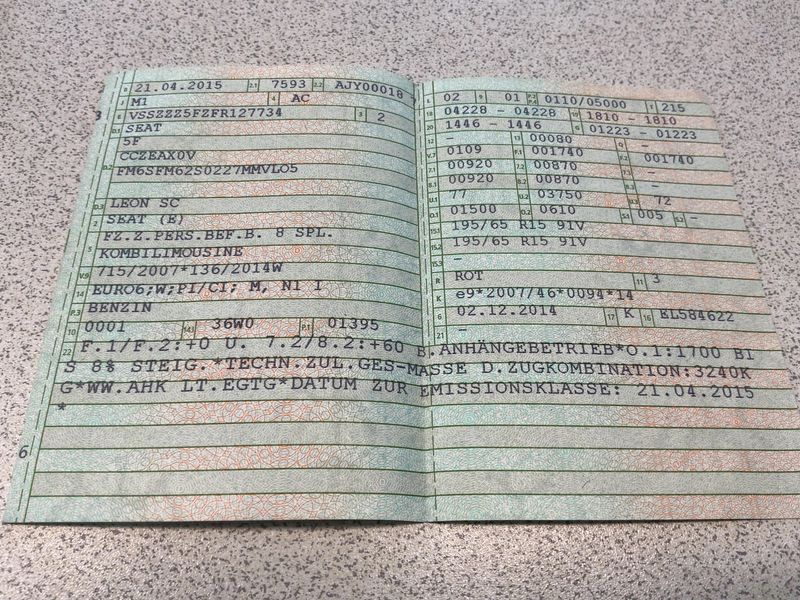 B 21.04.2015 2.1 7593 2.2 AJY00018 7
J M1 4 AC
E VSSZZZ5FZFR127734 3 2
D.1 SEAT
5F
D.2 CCZEAX0V
FM6SFM62S0227MMVLO5
D.3 LEON SC
2 SEAT (E)
5 FZ.Z.PERS.BEF.B. 8 SPL.
KOMBILIMOUSINE
V.9 715/2007*136/2014W
14 EURO6;W;PI/CI; M, N1 I
P.3 BENZIN
10 0001 14.1 36W0 P.1 01395
L 02 9 01 P.2 P.4 0110/05000 T 215
18 04228 - 04228 19 1810 - 1810
20 1446 - 1446 G 01223 - 01223
12 - 13 00080 Q -
V.7 0109 F.1 001740 F.2 001740
7.1 00920 7.2 00870 7.3 -
8.1 00920 8.2 00870 8.3 -
U.1 77 U.2 03750 U.3 72
O.1 01500 O.2 0610 S.1 005 S.2 -
15.1 195/65 R15 91V
15.2 195/65 R15 91V
15.3 -
R ROT 11 3
K e9*2007/46*0094*14
6 02.12.2014 17 K 16 EL584622
21 -
22 F.1/F.2:+0 U. 7.2/8.2:+60 B.ANHÄNGEBETRIEB*O.1:1700 BI
S 8% STEIG.*TECHN.ZUL.GES-MASSE D.ZUGKOMBINATION:3240K
G*WW.AHK LT.EGTG*DATUM ZUR EMISSIONSKLASSE: 21.04.2015
*